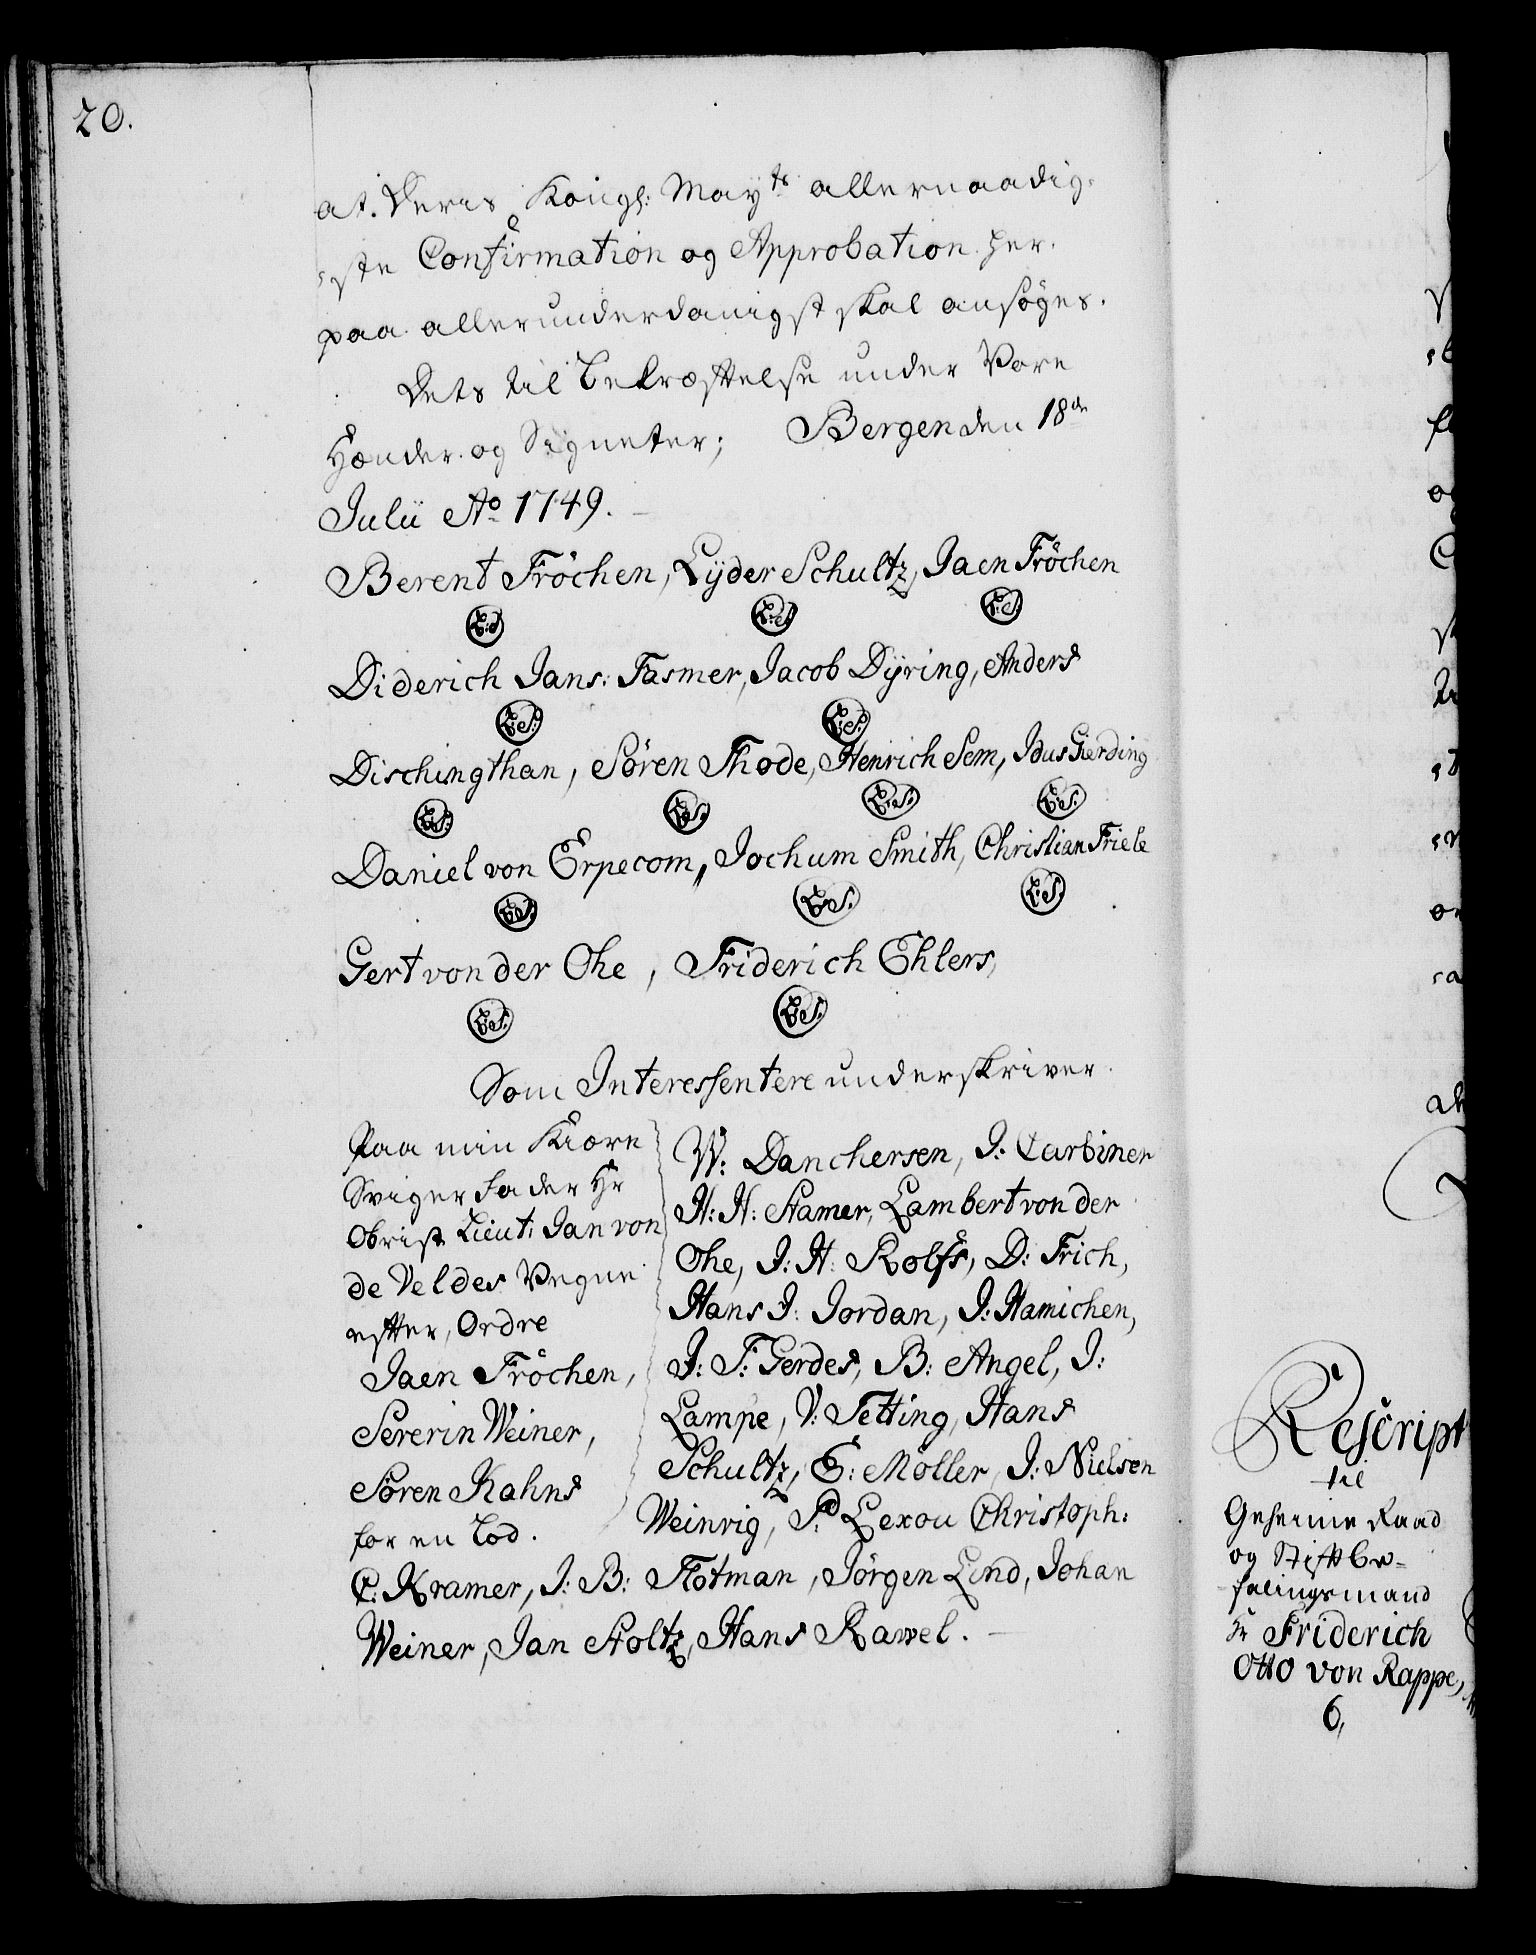 20.
at. Deris Kongl: Mayts allernaadig-
ste Confirmation og Approbation her-
paa allerunderdanigst skal ansøges.
Dets til Bekræftelse under Vore
Hænder og Signeter; Bergen den 18de
Julii Ao 1749.
Berent Fröchen, Lÿder Schultz, Jaen Fröchen
L:S L:S. L:S.
Diderich Jans: Fasmer, Jacob Dÿring, Anders
L:S: L:S:
Dischingthan, Sören Thode, Henrich Sem, Idus Gierding
L:S: L:S. L:S: L:S:
Daniel von Erpecom, Jochum Smith, Christian Friele
L:S. L:S. L:S.
Gert von der Ohe, Friderich Ehlers,
L:S: L:S:
Som Interessentere underskriver.
Paa min Kiære
Sviger Fader Hr
Obrist Lieut: Jan von
de Veldes Vegne
efter, Ordre
Jaen Fröchen,
Severin Weiner,
Sören Kahns
for en Lod.
W: Danchersen, J: Carbiner
H: H: Stamer, Lambert von der
Ohe, J: H: Rolfs, D: Frich,
Hans J: Jordan, J: Hamichen,
J: F: Gerdes, B: Angel, J:
Lampe, V: Fetting, Hans
Schultz, E: Möller, J: Nielsen
Weinrig, P: Lexou Christoph:
C: Kramer, J: B: Flotman, Jörgen Lind, Johan
Weiner, Jan Stoltz, Hans Rawel.
Rescript
til
Geheime Raad
og Stiftbe-
falingsmand
Hr Friderich
Otto von Rappe,
6,